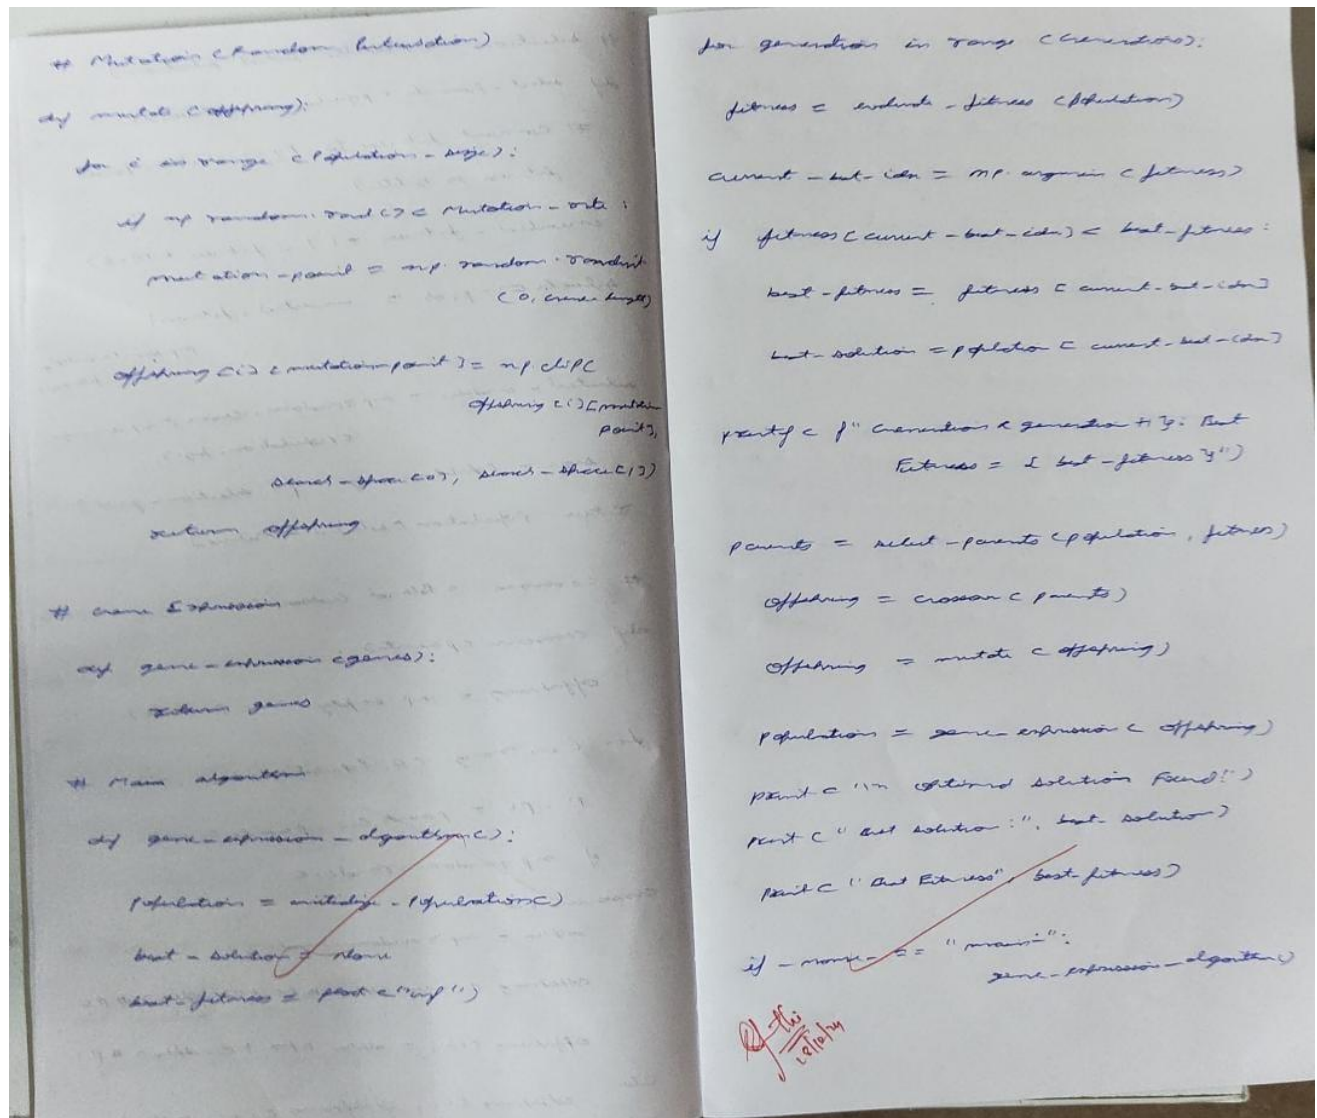 # Mutation (Random Perturbation)
def mutate (offspring):
for i in range (Population - size):
if np random. rand () < Mutation - rate :
mutation - point = np. random. randint
(0, Gene-length)
offspring [i] [mutation-point] = np. clip(
offspring [i] [mutation
point],
search - space [0], search - space [1])
return offspring
# Gene Expression
def gene - expression (genes):
return genes
# Main algorithm
def gene - expression - algorithm():
population = initialize - Population()
best - solution = None
best - fitness = float ("inf")
for generation in range (Generations):
fitness = evaluate - fitness (Population)
current - best - idx = np. argmin (fitness)
if fitness [current - best - idx] < best - fitness :
best - fitness = fitness [current - best - idx]
best - solution = population [current - best - idx]
f" Generation { generation + 1}: Best
Fitness = { best - fitness }")
parents = select - parents (population, fitness)
offspring = crossover (parents)
offspring = mutate (offspring)
population = gene - expression (offspring)
print ("\n Optimal solution Found:")
print ("Best solution :", best - solution)
print ("Best Fitness", best - fitness)
if - name - == "main-":
gene - expression - algorithm()
28/10/24